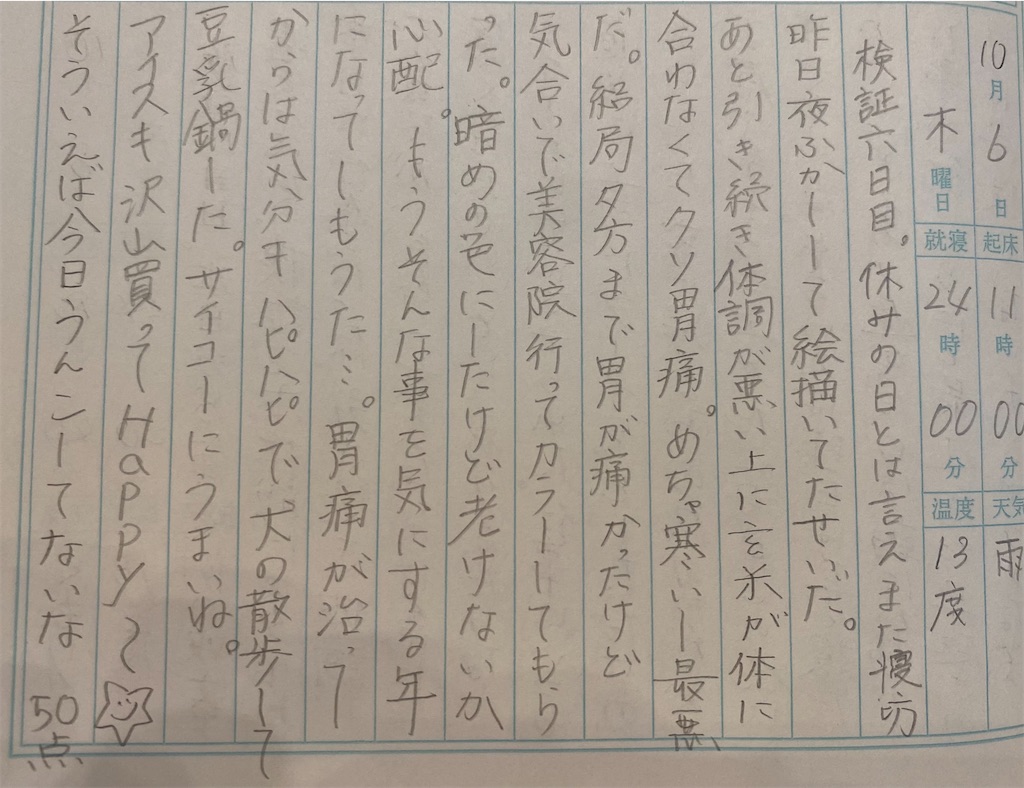 10月6日 起床11時00分 天気 雨
木曜日 就寝24時00分 温度 13度
検証六日目。休みの日とは言えまた寝坊
昨日夜ふかしして絵描いてたせいだ。
あと引き続き体調が悪い上に玄米が体に
合わなくてクソ胃痛。めちゃ寒いし最悪
だ。結局夕方まで胃が痛かったけど
気合いで美容院行ってカラーしてもら
った。暗めの色にしたけど老けないか
心配。もうそんな事を気にする年
になってしもうた…。胃痛が治って
からは気分もハピハピで犬の散歩して
豆乳鍋した。サイコーにうまいね。
アイスも沢山買ってHAPPY〜
そういえば今日うんこしてないな 50点